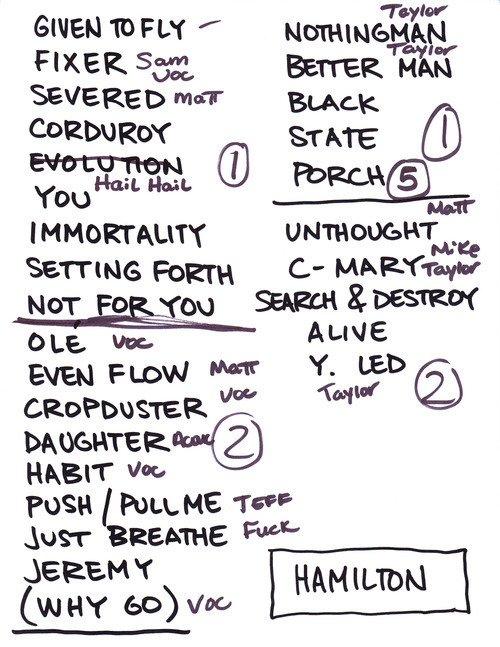 GIVEN TO FLY –
FIXER Sam Voc
SEVERED Matt
CORDUROY
EVOLUTION
Hail Hail
YOU
1
IMMORTALITY
SETTING FORTH
NOT FOR YOU
OLE Voc
EVEN FLOW Matt
CROPDUSTER Voc
DAUGHTER
2
HABIT Voc
PUSH / PULL ME TEFF
JUST BREATHE Fuck
JEREMY
(WHY GO) Voc
Taylor
NOTHINGMAN
Taylor
BETTER MAN
BLACK
STATE
1
PORCH 5
Matt
UNTHOUGHT
Mike
C-MARY Taylor
SEARCH & DESTROY
ALIVE
Y. LED
Taylor
2
HAMILTON